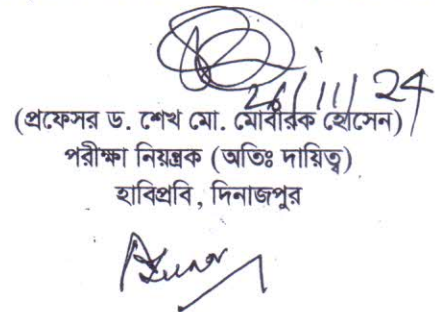 26/11/24
(প্রফেসর ড. শেখ মো. মোবারক হোসেন)
পরীক্ষা নিয়ন্ত্রক (অতিঃ দায়িত্ব)
হাবিপ্রবি, দিনাজপুর